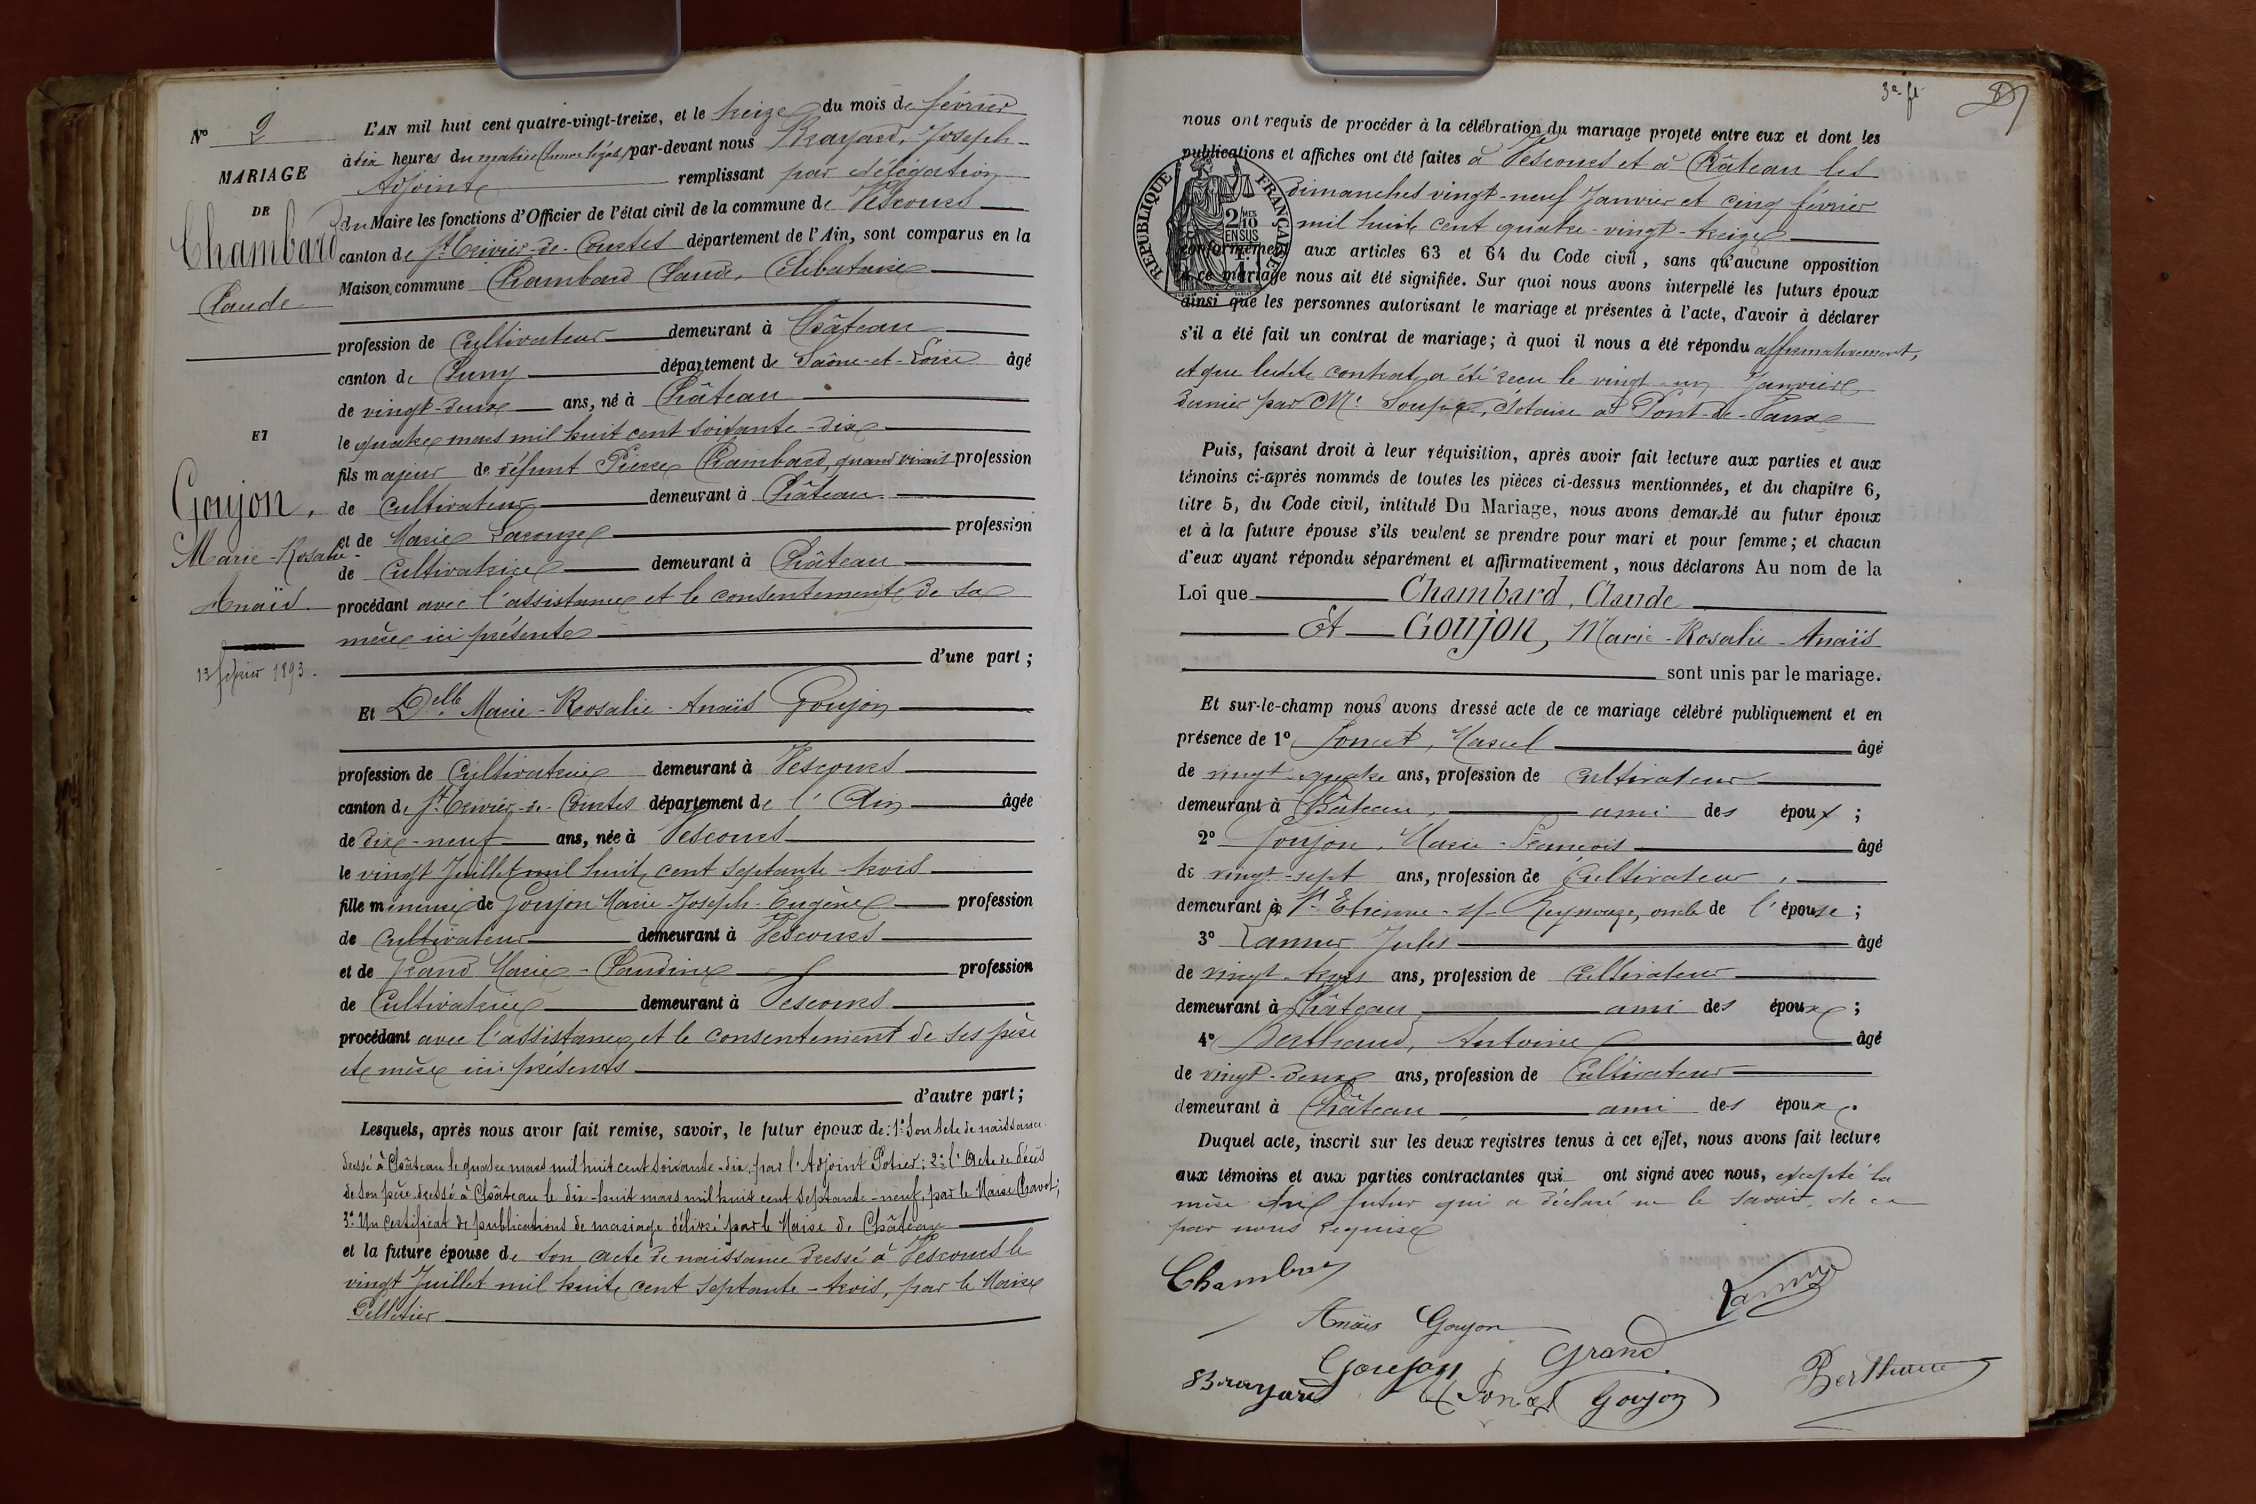 N° 2
MARIAGE
DE
Chambard
Claude
ET
Goujon,
Marie-Rosalie-
Anaïs
13 février 1893.
L'AN mil huit cent quatre-vingt-treize, et le treize du mois de février
à dix heures du matin (heure légale) par-devant nous Brayard, Joseph
Adjoint remplissant par délégation
du Maire les fonctions d'Officier de l'état civil de la commune de Vescours
canton de St Trivier-de-Courtes département de l'Ain, sont comparus en la
Maison commune Chambard Claude, Célibataire
profession de Cultivateur demeurant à Château
canton de Cluny département de Saône-et-Loire âgé
de vingt-deux ans, né à Château
le quatre mars mil huit cent soixante-dix
fils majeur de défunt Pierre Chambard, quand vivait profession
de Cultivateur demeurant à Château
et de Marie Larouze profession
de Cultivatrice demeurant à Château
procédant avec l'assistance et le consentement de sa
mère ici présente
d'une part ;
Et Delle Marie-Rosalie-Anaïs Goujon
profession de Cultivatrice demeurant à Vescours
canton de St Trivier-de-Courtes département de l'Ain âgée
de dix-neuf ans, née à Vescours
le vingt Juillet mil huit cent septante-trois
fille mineure de Goujon Marie-Joseph-Eugène profession
de Cultivateur demeurant à Vescours
et de Grand Marie-Claudine profession
de Cultivatrice demeurant à Vescours
procédant avec l'assistance et le consentement de ses père
et mère ici présents
d'autre part ;
Lesquels, après nous avoir fait remise, savoir, le futur époux de : 1° Son Acte de naissance
dressé à Château le quatre mars mil huit cent soixante-dix, par l'Adjoint Potier ; 2° l'Acte de décès
de son père dressé à Château le dix-huit mars mil huit cent septante-neuf, par le Maire Chavot ;
3° Un certificat de publications de mariage délivré par le Maire de Château
et la future épouse de son acte de naissance dressé à Vescours le
vingt Juillet mil huit cent septante-trois, par le Maire
Pelletier
3e ft
nous ont requis de procéder à la célébration du mariage projeté entre eux et dont les
publications et affiches ont été faites à Vescours et à Château les
dimanches vingt-neuf Janvier et cinq février
mil huit cent quatre-vingt-treize
RÉPUBLIQUE FRANÇAISE
2/10 EN SUS
conformément aux articles 63 et 64 du Code civil, sans qu'aucune opposition
à ce mariage nous ait été signifiée. Sur quoi nous avons interpellé les futurs époux
ainsi que les personnes autorisant le mariage et présentes à l'acte, d'avoir à déclarer
s'il a été fait un contrat de mariage ; à quoi il nous a été répondu affirmativement,
et que ledit contrat a été recu le vingt-un Janvier
dernier par Me Notaire à Pont-de-Vaux
Puis, faisant droit à leur réquisition, après avoir fait lecture aux parties et aux
témoins ci-après nommés de toutes les pièces ci-dessus mentionnées, et du chapitre 6,
titre 5, du Code civil, intitulé Du Mariage, nous avons demandé au futur époux
et à la future épouse s'ils veulent se prendre pour mari et pour femme ; et chacun
d'eux ayant répondu séparément et affirmativement, nous déclarons Au nom de la
Loi que Chambard, Claude
Et Goujon, Marie-Rosalie-Anaïs
sont unis par le mariage.
Et sur-le-champ nous avons dressé acte de ce mariage célébré publiquement et en
présence de 1° Poncet, Marcel âgé
de vingt-quatre ans, profession de Cultivateur
demeurant à Château, ami des époux ;
2° Goujon, Marie-François âgé
de vingt-sept ans, profession de Cultivateur,
demeurant à St Etienne-s/-Reyssouze, oncle de l'épouse ;
3° Lanner Jules âgé
de vingt-trois ans, profession de Cultivateur
demeurant à Château ami des époux ;
4° Berthaud, Antoine âgé
de vingt-deux ans, profession de Cultivateur
demeurant à Château ami des époux.
Duquel acte, inscrit sur les deux registres tenus à cet effet, nous avons fait lecture
aux témoins et aux parties contractantes qui ont signé avec nous, excepté la
mère du futur qui a déclaré ne le savoir, de ce
par nous requise
Chambard
Anaïs Goujon
Goujon
Grand
Brayard
Poncet
Goujon
Berthaud